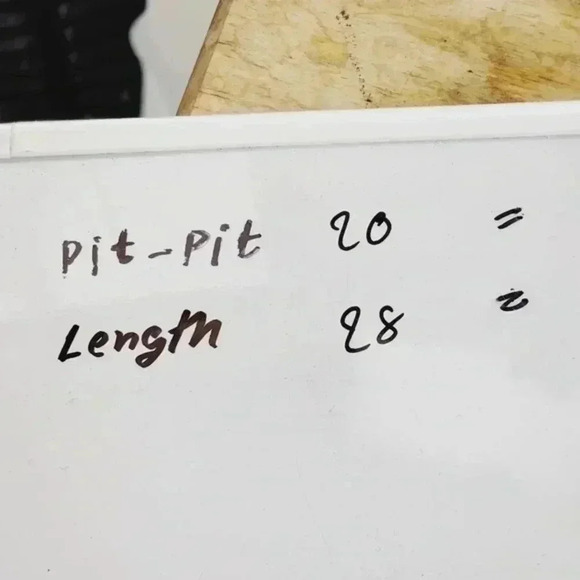 Pit-Pit 20 =
Length 28 =